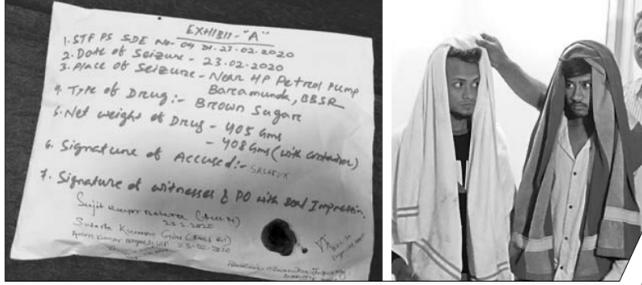 EXHIBIT-"A"
1. STF PS SDE No- 04 Dt-23-02-2020
2. Date of Seizure - 23.02.2020
3. Place of Seizure - Near HP Petrol pump
Baramunda, BBSR
4. Type of Drug:- Brown Sugar
5. Net weight of Drug - 405 Gms
- 408 Gms (with container)
6. Signature of Accused:-
7. Signature of witnesses & PO with seal Impression.
Sujit Kumar
23-2-2020
Kumar